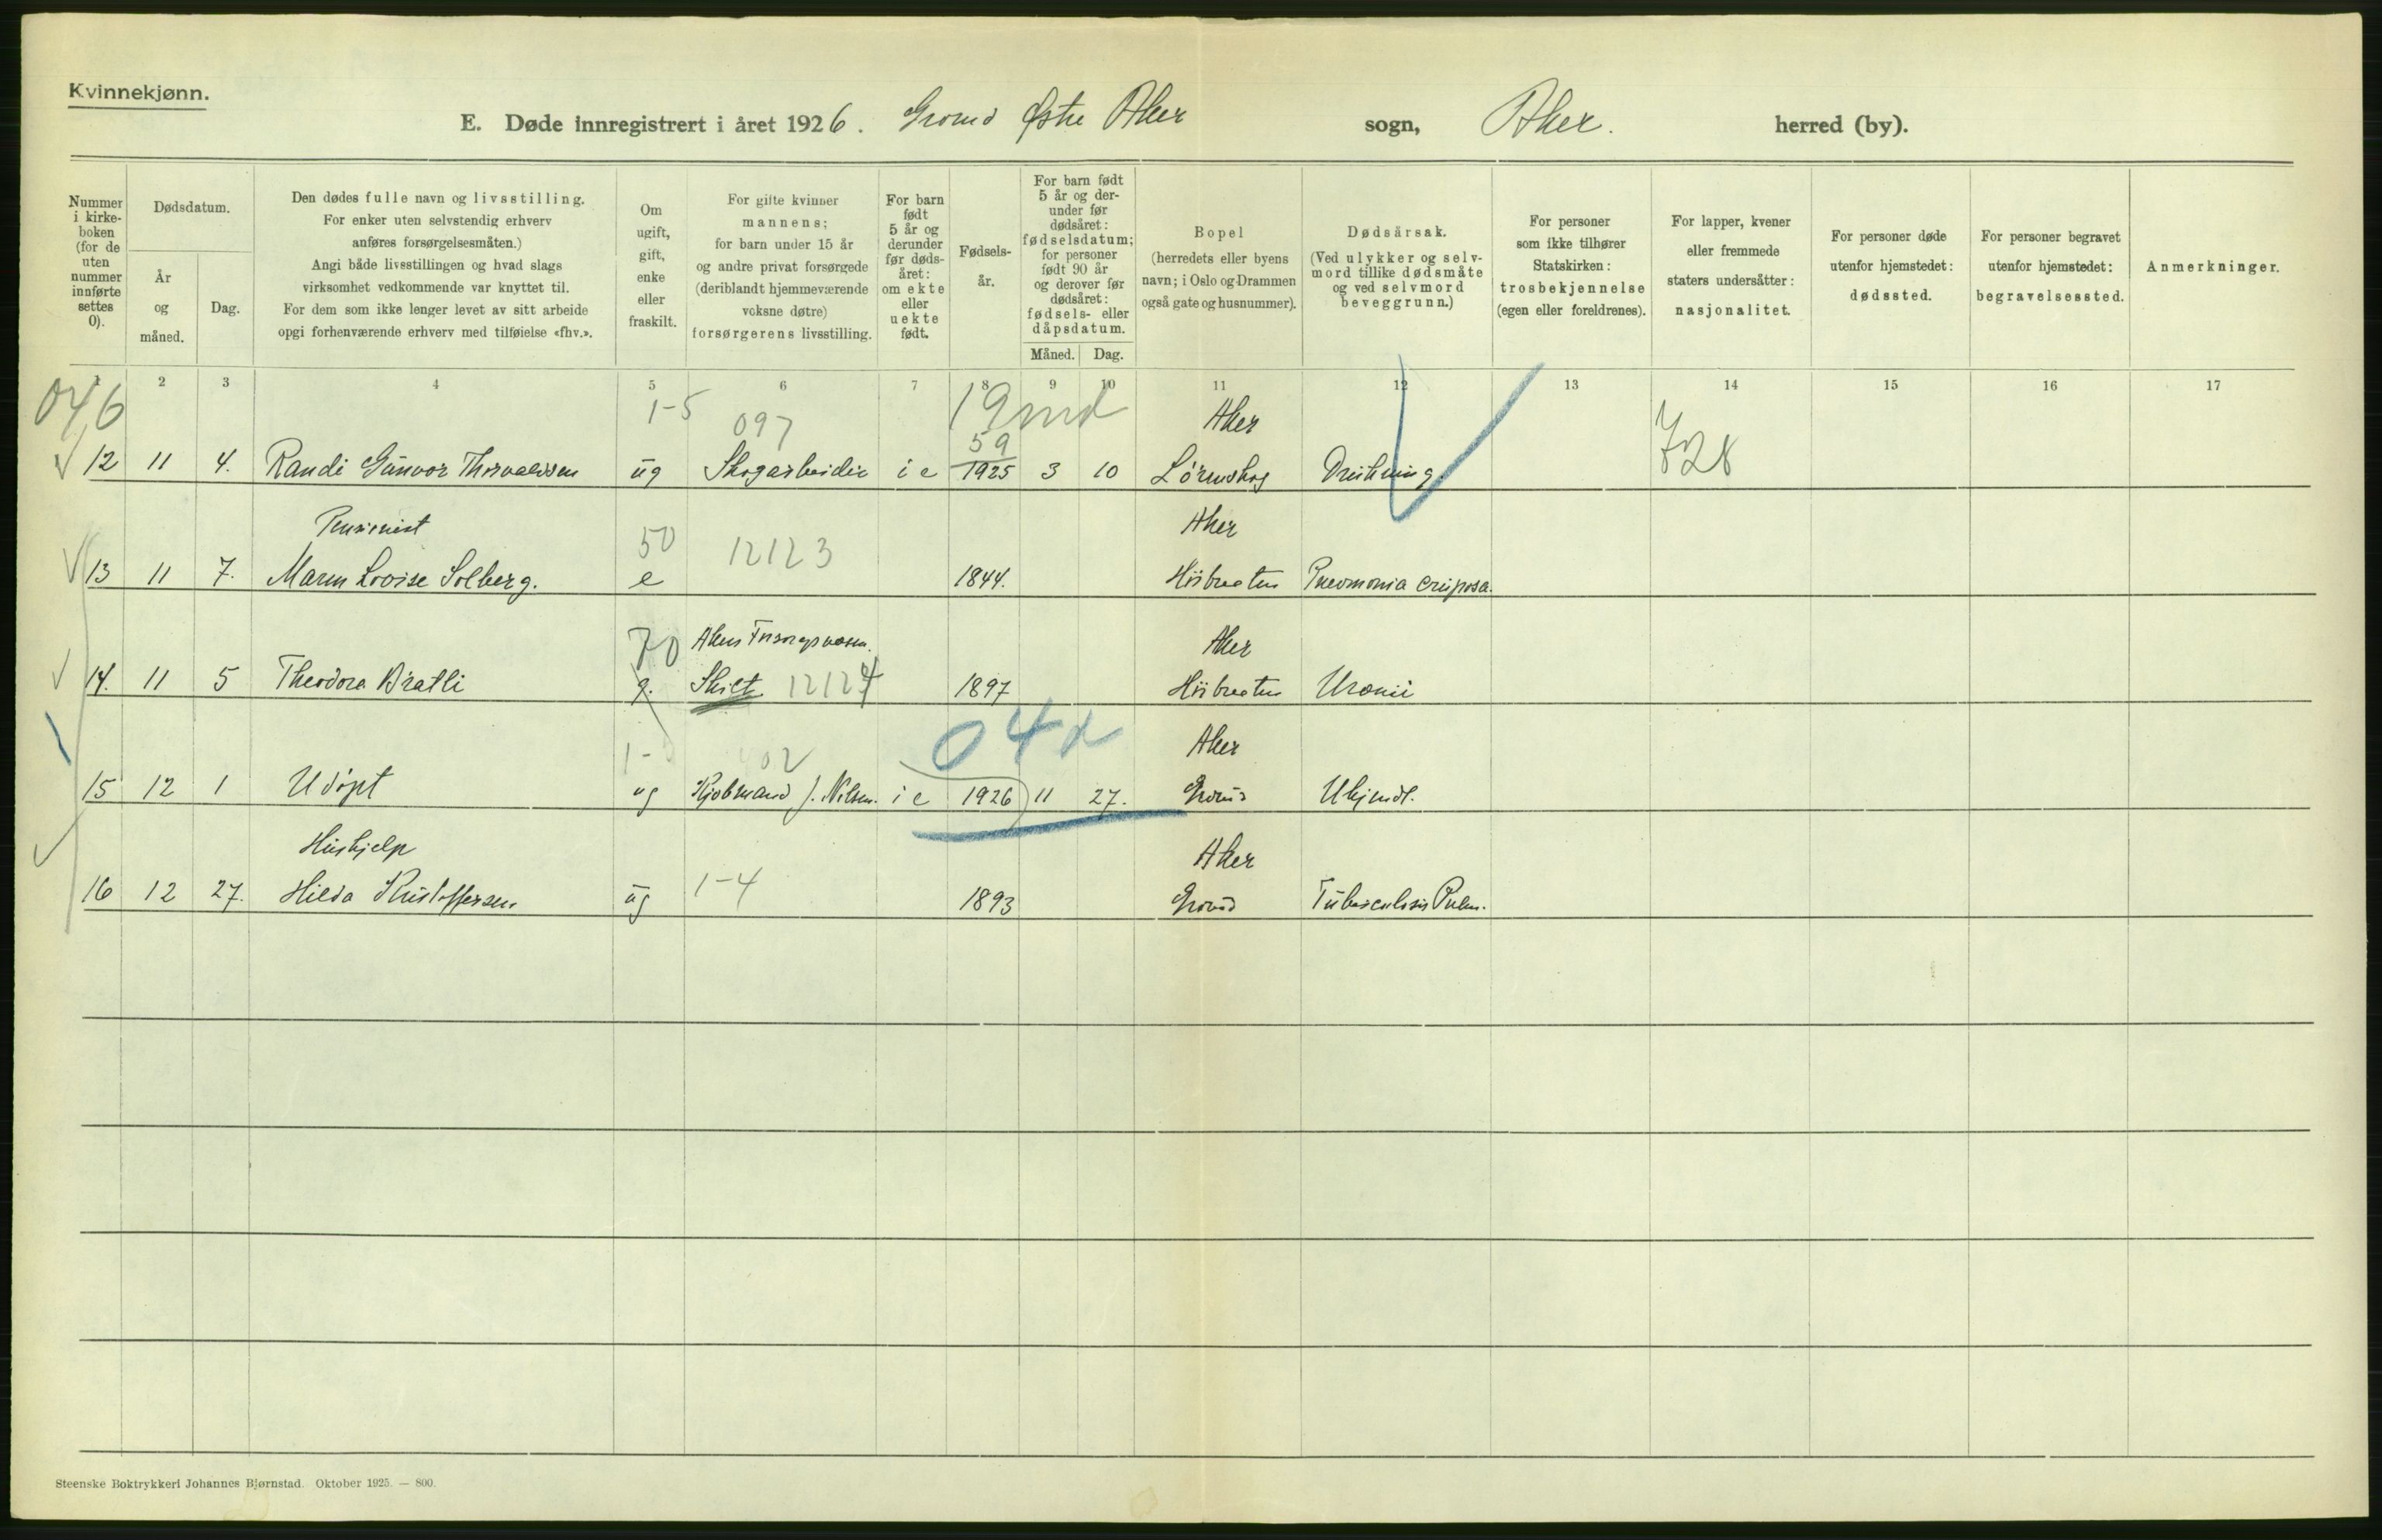 Kvinnekjønn.
E. Døde innregistrert i året 1926. Grorud Østre Aker sogn, Aker. herred (by).
Nummer i kirke- boken (for de uten nummer innførte settes 0).
Dødsdatum.
År og måned.
Dag.
Den dødes fulle navn og livsstilling.
For enker uten selvstendig erhverv
anføres forsørgelsesmåten.)
Angi både livsstillingen og hvad slags
virksomhet vedkommende var knyttet til.
For dem som ikke lenger levet av sitt arbeide
opgi forhenværende erhverv med tilføielse «fhv.».
Om ugift, gift, enke eller fraskilt.
For gifte kvinner
mannens;
for barn under 15 år
og andre privat forsørgede
(deriblandt hjemmeværende
voksne døtre)
forsørgerens livsstilling.
For barn født 5 år og derunder før døds- året: om ekte eller uekte født.
Fødsels- år.
For barn født
5 år og der-
under før
dødsåret:
fødselsdatum;
for personer
født 90 år
og derover før
dødsåret:
fødsels- eller
dåpsdatum.
Måned. Dag.
Bopel
(herredets eller byens
navn; i Oslo og Drammen
også gate og husnummer).
Dødsårsak.
(Ved ulykker og selv-
mord tillike dødsmåte
og ved selvmord
beveggrunn.)
For personer
som ikke tilhører
Statskirken:
trosbekjennelse
(egen eller foreldrenes).
For lapper, kvener
eller fremmede
staters undersåtter:
nasjonalitet.
For personer døde
utenfor hjemstedet:
dødssted.
For personer begravet
utenfor hjemstedet:
begravelsessted.
Anmerkninger.
1 2 3 4 5 6 7 8 9 10 11 12 13 14 15 16 17
046 1-5 097 19md Aker
59
12 11 4. Randi Gunvor Thorvaldsen ug Skogarbeider i e 1925 3 10 Lørenskog Drukning. 728
Pensionist 50 12123 Aker
13 11 7. Maren Lovise Solberg. e 1844. Pneumonia cruposa.
70 Akers Forsorgsvæsen. Aker
14. 11 5 Theodora Bratli g. Skilt 12124 1897 Uræmi
1- 402 04d Aker
15 12 1 Udøpt ug Kjøbmand J. Nilsen. i e 1926 11 27. Grorud Ukjendt.
Hushjelp Aker
16 12 27. Hilda Kristoffersen ug 1-4 1893 Grorud Tuberculosis Pulm.
Steenske Boktrykkeri Johannes Bjørnstad. Oktober 1925. — 800.